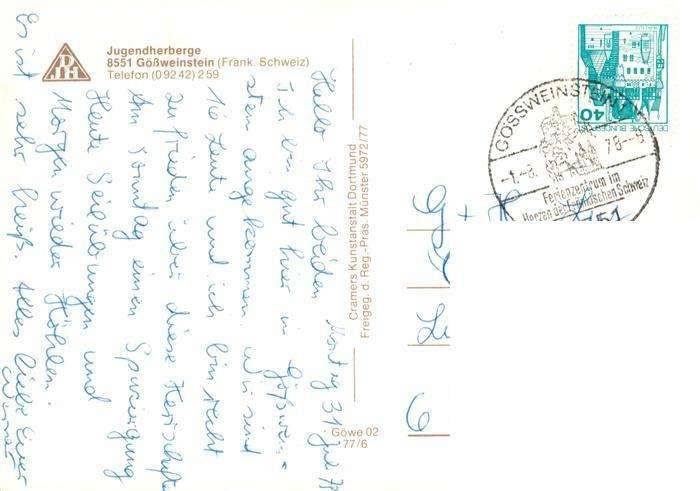 DJH
Jugendherberge
8551 Gößweinstein (Frank. Schweiz)
Telefon (09242) 259
Montag 31. Juli 78
Hallo Ihr beiden
Ich bin gut hier in Gößwein-
stein angekommen. wir sind
Leute und ich bin recht
zufrieden über diese
Am Sonntag einen Spaziergang
Heute Seilübungen und
Morgen wieder Höhlen.
Es ist sehr heiß. Alles liebe Euer
Werner
Cramers Kunstanstalt Dortmund
Freigeg. d. Reg.-Präs. Münster 5972/77
Göwe 02
77/6
DEUTSCHE BUNDESPOST
40
GOSSWEINSTEIN
-1.-8. 78.-8
Ferienzentrum im
Herzen der Fränkischen Schweiz
G
+
L
6